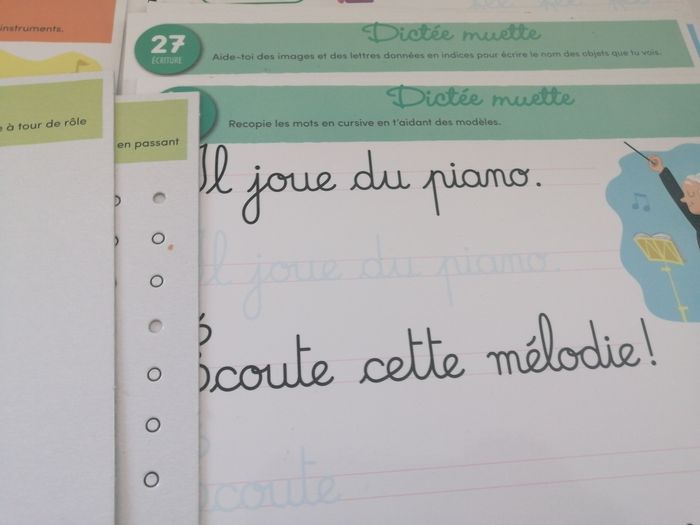 instruments.
27
ÉCRITURE
Dictée muette
Aide-toi des images et des lettres données en indices pour écrire le nom des objets que tu vois.
à tour de rôle
en passant
Dictée muette
Recopie les mots en cursive en t'aidant des modèles.
Il joue du piano.
Il joue du piano.
Écoute cette mélodie!
Écoute